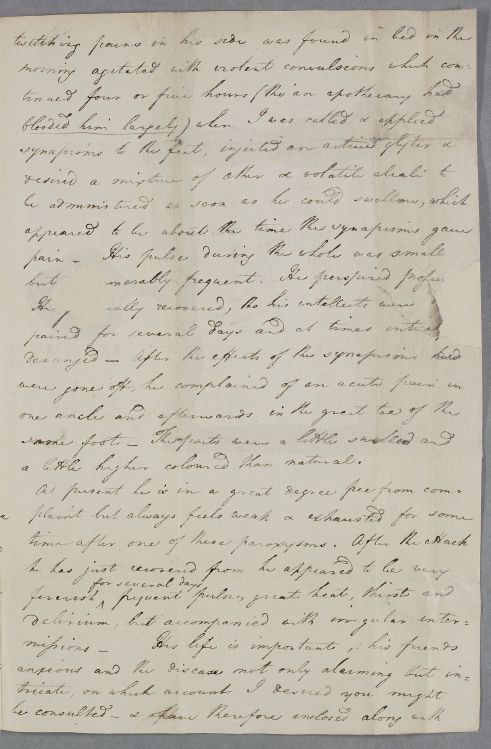 twitching pains in his side was found in bed in the
morning agitated with violent convulsions which con=
tinued four or five hours (tho' an apothecary had
blooded him largely) when I was called & applied
synapisms to the feet, injected an active glyster &
desired a mixture of ether & volatile alcali to
be administered as soon as he could swallow, which
appeared to be about the time the synapisms gave
pain – His pulse during the whole was small
but merably frequent. He perspired profu
He ually recovered, tho his intellects were
paired for several days and at times entirel
deranged – After the effects of the synapisms
were gone off, he complained of an acute pain in
one ancle and afterwards in the great toe of the
same foot – The parts were a little swelled and
a little higher coloured than natural.
At present he is in a great degree free from com=
plaint but always feels weak & exhausted for some
time after one of these paroxysms. After the attack
he has just recovered from he appeared to be very
for several days
feverish, frequent pulse, great heat, thirst and
delirium, but accompanied with irregular inter=
missions – His life is important, his friends
anxious and the disease not only alarming but in=
tricate, on which account I desired you might
be consulted – & have therefore enclosed along with